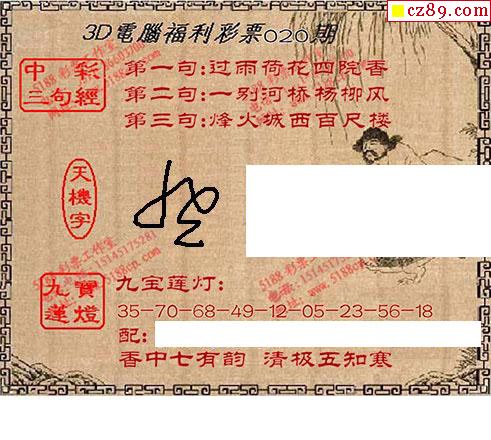 cz89.com
3D電腦福利彩票020期
中彩
三句經
第一句:过雨荷花四院香
第二句:一别河桥杨柳风
第三句:烽火城西百尺楼
天機字
九寳
蓮燈
九宝莲灯:
35-70-68-49-12-05-23-56-18
配:
香中七有韵 清极五知寒